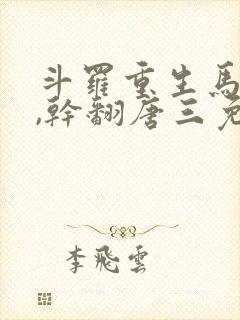 斗羅重生馬
,幹翻唐三免
李飛雲